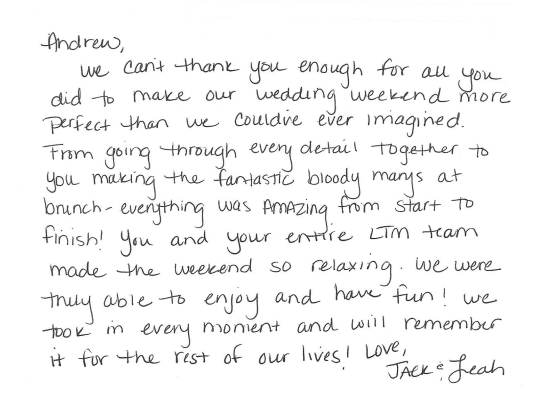 Andrew,
we can't thank you enough for all you
did to make our wedding weekend more
perfect than we could've ever imagined.
From going through every detail together to
you making the fantastic bloody marys at
brunch - everything was AMAZING from start to
finish! You and your entire LTM team
made the weekend so relaxing. we were
truly able to enjoy and have fun! we
took in every moment and will remember
it for the rest of our lives! Love,
JACK & Leah